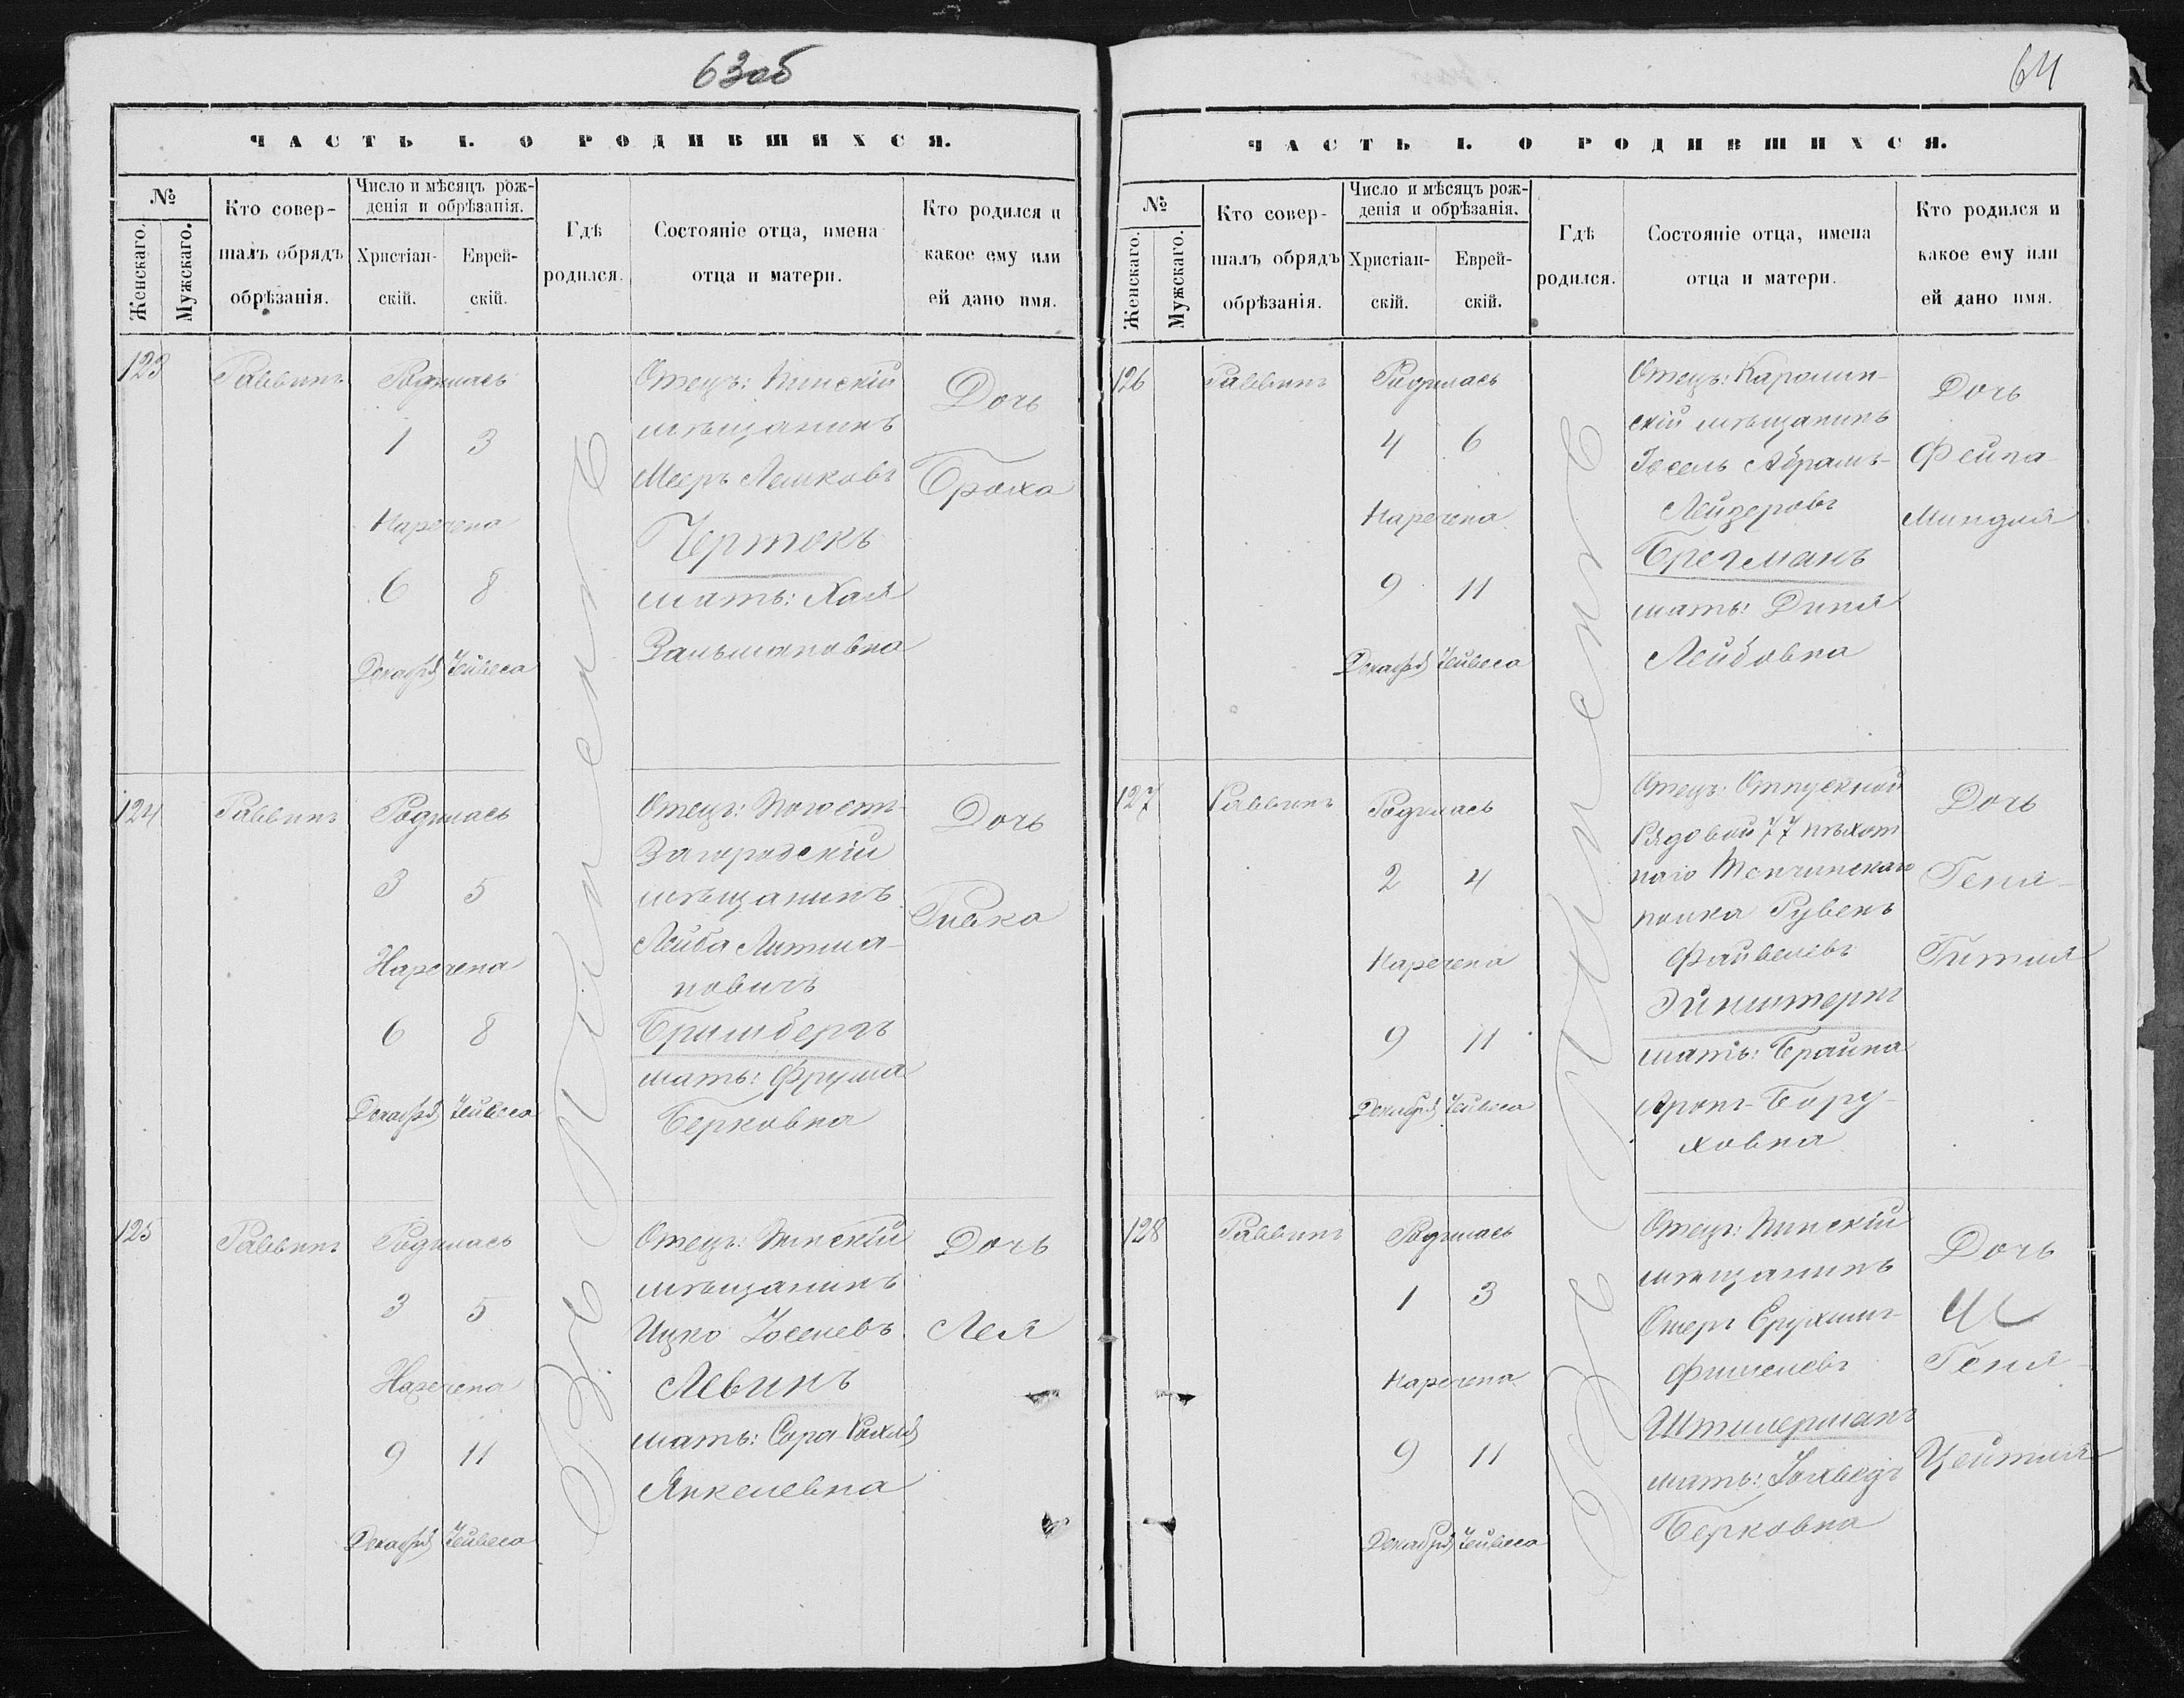 63об
ЧАСТЬ I. О РОДИВШИХСЯ.
№
Женскаго.
Мужскаго.
Кто совер-
шалъ обрядъ
обрѣзанія.
Число и мѣсяцъ рож-
денія и обрѣзанія.
Христіан-
скій.
Еврей-
скій.
Гдѣ
родился.
Состояніе отца, имена
отца и матери.
Кто родился и
какое ему или
ей дано имя.
123
Раввинъ
Родилась
1 3
Наречена
6 8
Декабря Тейвеса
Въ Пинскѣ
Отецъ: Пинскій
мѣщанинъ
Мееръ Лейзеровъ
Чертокъ
мать: Хая
Зальмановна
Дочь
Броха
124
Раввинъ
Родилась
3 5
Наречена
6 8
Декабря Тейвеса
Отецъ: Погост-
Загородскій
мѣщанинъ
Лейба Литма-
новичъ
Гринбергъ
мать: Фрума
Берковна
Дочь
Ривка
125
Раввинъ
Родилась
3 5
Наречена
9 11
Декабря Тейвеса
Отецъ: Пинскій
мѣщанинъ
Ицко Іоселевъ
Левинъ
мать: Сора-Рахля
Янкелевна
Дочь
Лея
64
ЧАСТЬ I. О РОДИВШИХСЯ.
№
Женскаго.
Мужскаго.
Кто совер-
шалъ обрядъ
обрѣзанія.
Число и мѣсяцъ рож-
денія и обрѣзанія.
Христіан-
скій.
Еврей-
скій.
Гдѣ
родился.
Состояніе отца, имена
отца и матери.
Кто родился и
какое ему или
ей дано имя.
126
Раввинъ
Родилась
4 6
Наречена
9 11
Декабря Тейвеса
Въ Пинскѣ
Отецъ: Каролин-
скій мѣщанинъ
Іосель Абрамъ-
Лейзеровъ
Брегманъ
мать: Диня
Лейбовна
Дочь
Фейга-
Миндля
127
Раввинъ
Родилась
2 4
Наречена
9 11
Декабря Тейвеса
Отецъ: Отпускной
Рядовой 77 пѣхот
наго Тенгинскаго
полка Рувенъ
Файвелевъ
Эйнштернъ
мать: Брайна
Аронъ-Бору-
ховна
Дочь
Геня-
Гитля
128
Раввинъ
Родилась
1 3
Наречена
9 11
Декабря Тейвеса
Отецъ: Пинскій
мѣщанинъ
Омеръ Ерухимъ-
Фишелевъ
Штилерманъ
мать: Іохведъ
Берковна
Дочь
Геня-
Цейтля